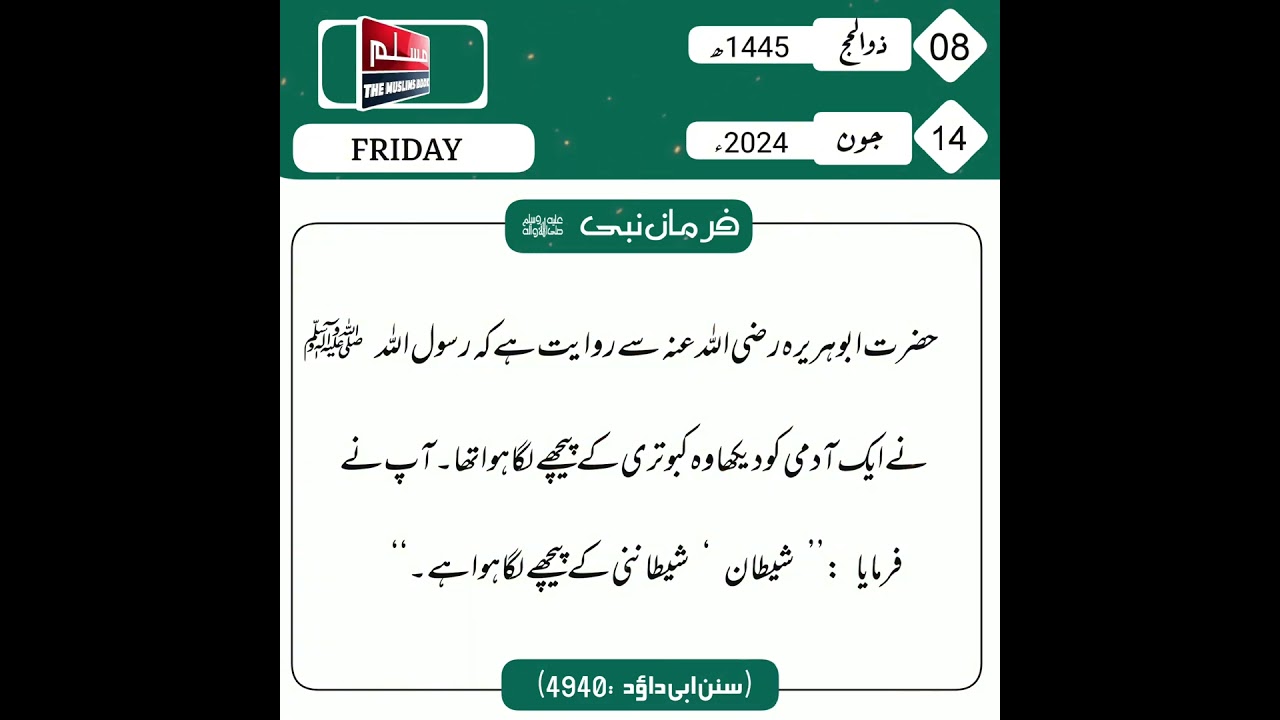 مسلم
THE MUSLIMS BOOK
FRIDAY
08 ذوالحج 1445ھ
14 جون 2024ء
فرمان نبی صلی اللہ علیہ وآلہ وسلم
حضرت ابوہریرہ رضی اللہ عنہ سے روایت ہے کہ رسول اللہ ﷺ
نے ایک آدمی کو دیکھا وہ کبوتری کے پیچھے لگا ہوا تھا۔ آپ نے
فرمایا : ’’ شیطان ‘ شیطاننی کے پیچھے لگا ہوا ہے۔‘‘
(سنن ابی داؤد :4940)